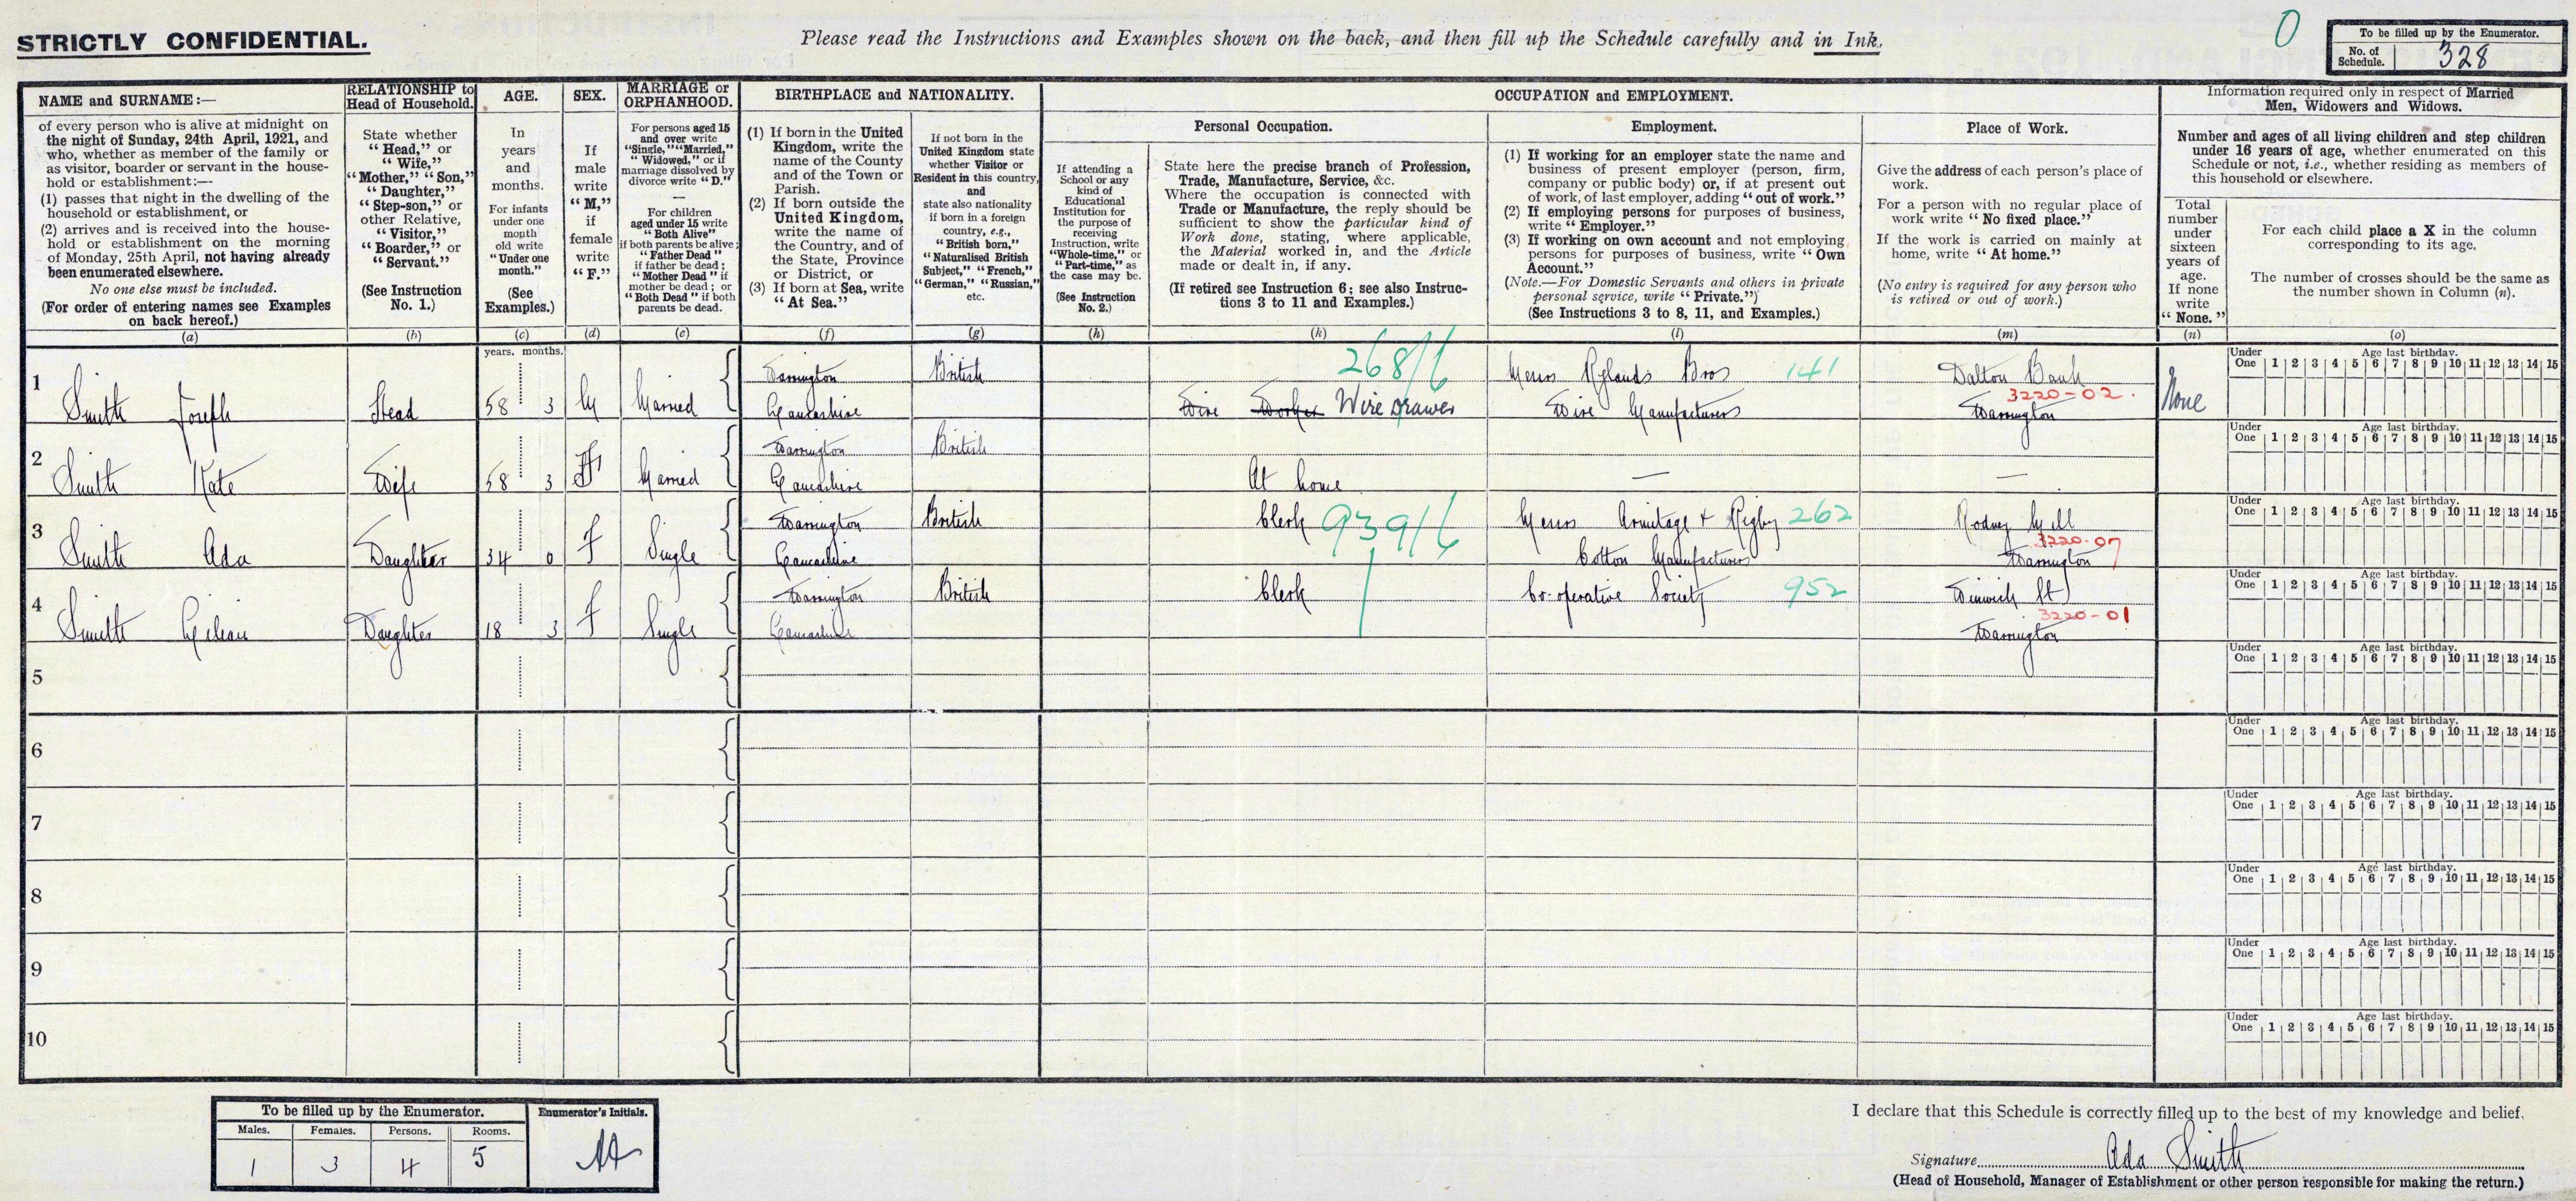 STRICTLY CONFIDENTIAL.
Please read the Instructions and Examples shown on the back, and then fill up the Schedule carefully and in Ink.
0
To be filled up by the Enumerator.
No. of Schedule. 328
NAME and SURNAME:—
of every person who is alive at midnight on
the night of Sunday, 24th April, 1921, and
who, whether as member of the family or
as visitor, boarder or servant in the house-
hold or establishment:—
(1) passes that night in the dwelling of the
household or establishment, or
(2) arrives and is received into the house-
hold or establishment on the morning
of Monday, 25th April, not having already
been enumerated elsewhere.
No one else must be included.
(For order of entering names see Examples
on back hereof.)
(a)
RELATIONSHIP to
Head of Household.
State whether
"Head," or
"Wife,"
"Mother," "Son,"
"Daughter,"
"Step-son," or
other Relative,
"Visitor,"
"Boarder," or
"Servant."
(See Instruction
No. 1.)
(b)
AGE.
In
years
and
months.
For infants
under one
month
old write
"Under one
month."
(See
Examples.)
(c)
SEX.
If
male
write
"M,"
if
female
write
"F."
(d)
MARRIAGE or
ORPHANHOOD.
For persons aged 15
and over write
"Single," "Married,"
"Widowed," or if
marriage dissolved by
divorce write "D."
—
For children
aged under 15 write
"Both Alive"
if both parents be alive;
"Father Dead"
if father be dead;
"Mother Dead" if
mother be dead; or
"Both Dead" if both
parents be dead.
(e)
BIRTHPLACE and NATIONALITY.
(1) If born in the United
Kingdom, write the
name of the County
and of the Town or
Parish.
(2) If born outside the
United Kingdom,
write the name of
the Country, and of
the State, Province
or District, or
(3) If born at Sea, write
"At Sea."
(f)
If not born in the
United Kingdom state
whether Visitor or
Resident in this country,
and
state also nationality
if born in a foreign
country, e.g.,
"British born,"
"Naturalised British
Subject," "French,"
"German," "Russian,"
etc.
(g)
OCCUPATION and EMPLOYMENT.
Personal Occupation.
If attending a
School or any
kind of
Educational
Institution for
the purpose of
receiving
Instruction, write
"Whole-time," or
"Part-time," as
the case may be.
(See Instruction
No. 2.)
(h)
State here the precise branch of Profession,
Trade, Manufacture, Service, &c.
Where the occupation is connected with
Trade or Manufacture, the reply should be
sufficient to show the particular kind of
Work done, stating, where applicable,
the Material worked in, and the Article
made or dealt in, if any.
(If retired see Instruction 6; see also Instruc-
tions 3 to 11 and Examples.)
(k)
Employment.
(1) If working for an employer state the name and
business of present employer (person, firm,
company or public body) or, if at present out
of work, of last employer, adding "out of work."
(2) If employing persons for purposes of business,
write "Employer."
(3) If working on own account and not employing
persons for purposes of business, write "Own
Account."
(Note.—For Domestic Servants and others in private
personal service, write "Private.")
(See Instructions 3 to 8, 11, and Examples.)
(l)
Place of Work.
Give the address of each person's place of
work.
For a person with no regular place of
work write "No fixed place."
If the work is carried on mainly at
home, write "At home."
(No entry is required for any person who
is retired or out of work.)
(m)
Information required only in respect of Married
Men, Widowers and Widows.
Number and ages of all living children and step children
under 16 years of age, whether enumerated on this
Schedule or not, i.e., whether residing as members of
this household or elsewhere.
Total
number
under
sixteen
years of
age.
If none
write
"None."
(n)
For each child place a X in the column
corresponding to its age.
The number of crosses should be the same as
the number shown in Column (n).
(o)
years. months.
1
Warrington British 268/6 Messrs Rylands Bros 141 Dalton Bank
3220-02.
Smith Joseph Head 58 3 M Married Lancashire Wire Worker Wire Drawer Wire Manufacturers Warrington None
Under One Age last birthday. 1 2 3 4 5 6 7 8 9 10 11 12 13 14 15
2
Warrington British
Smith Kate Wife 58 3 F Married Lancashire At home — —
Under One Age last birthday. 1 2 3 4 5 6 7 8 9 10 11 12 13 14 15
3
Warrington British Clerk 939/6 Messrs Armitage & Rigby 262 Rodney Mill
3220-07
Smith Ada Daughter 34 0 F Single Lancashire Cotton Manufacturers Warrington
Under One Age last birthday. 1 2 3 4 5 6 7 8 9 10 11 12 13 14 15
4
Warrington British Clerk Co-operative Society 952 Winwick St
3220-01
Smith Lilian Daughter 18 3 F Single Lancashire Warrington
Under One Age last birthday. 1 2 3 4 5 6 7 8 9 10 11 12 13 14 15
5
Under One Age last birthday. 1 2 3 4 5 6 7 8 9 10 11 12 13 14 15
6
Under One Age last birthday. 1 2 3 4 5 6 7 8 9 10 11 12 13 14 15
7
Under One Age last birthday. 1 2 3 4 5 6 7 8 9 10 11 12 13 14 15
8
Under One Age last birthday. 1 2 3 4 5 6 7 8 9 10 11 12 13 14 15
9
Under One Age last birthday. 1 2 3 4 5 6 7 8 9 10 11 12 13 14 15
10
Under One Age last birthday. 1 2 3 4 5 6 7 8 9 10 11 12 13 14 15
To be filled up by the Enumerator.
Males. Females. Persons. Rooms.
1 3 4 5
Enumerator's Initials.
I declare that this Schedule is correctly filled up to the best of my knowledge and belief.
Signature Ada Smith
(Head of Household, Manager of Establishment or other person responsible for making the return.)